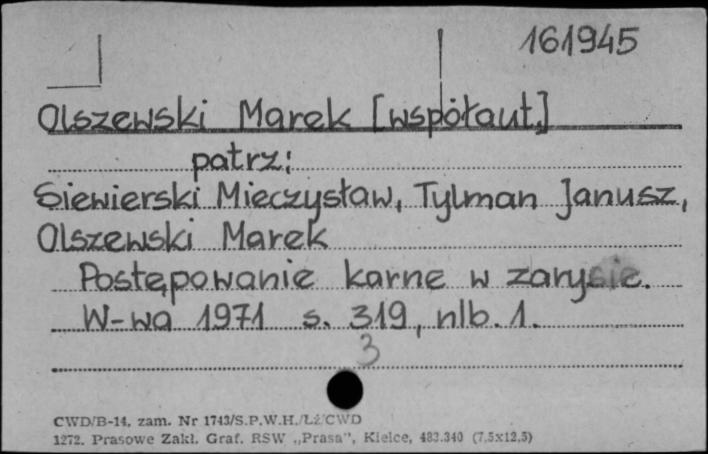 161945
Olszewski Marek [współaut.]
patrz:
Siewierski Mieczysław, Tylman Janusz,
Olszewski Marek
Postępowanie karne w zarysie.
W-wa 1971 s. 319, nlb. 1.
3
CWD/B-14, zam. Nr 1743/S.P.W.H./LŻ/CWD
1272. Prasowe Zakł. Graf. RSW „Prasa", Kielce, 483.340 (7,5x12,5)